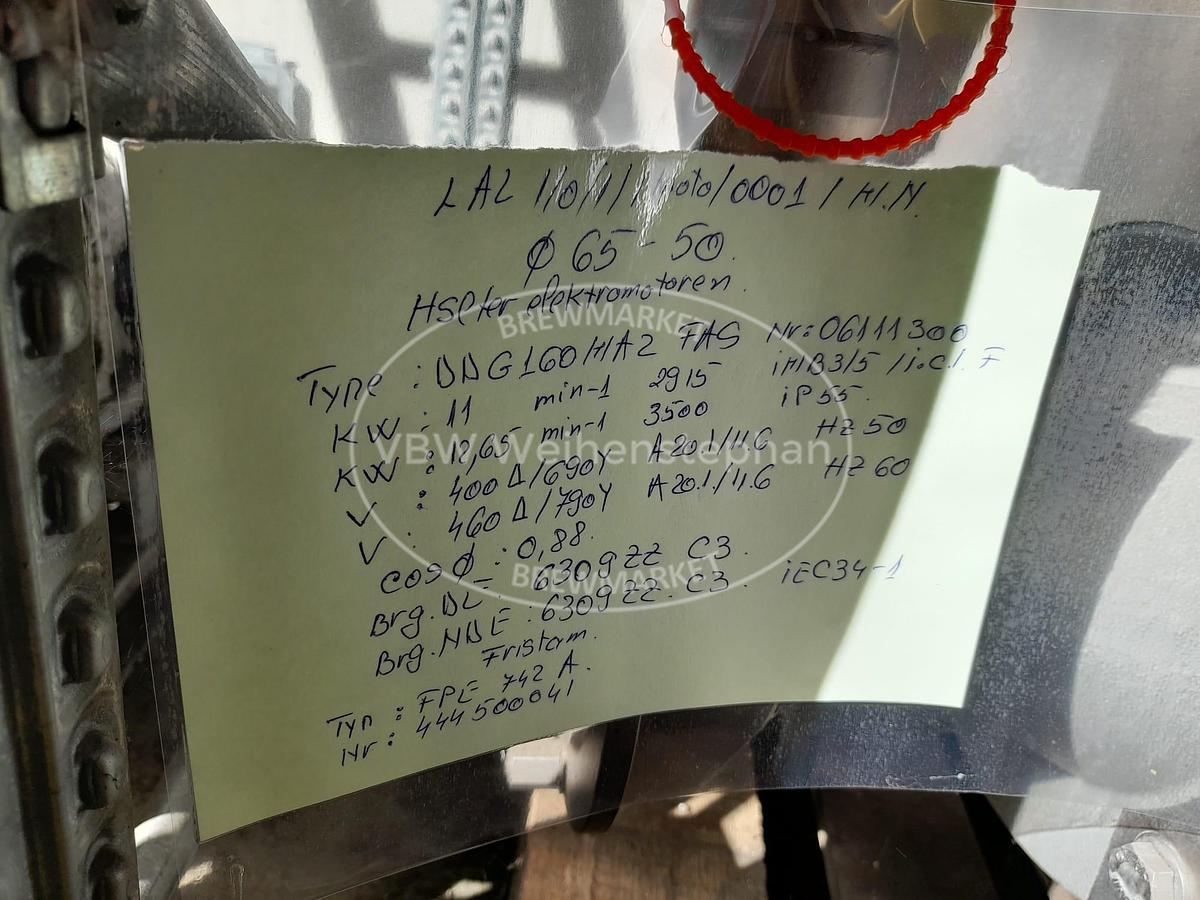 LAL 1/0/1/1 /0001 / H1.N.
Ø 65 - 50.
elektromotoren.
Type : DDG160MA2 FAS Nr: 06111300
KW : 11 min-1 2915 iMB3/5 /i.C.l. F
KW : 12,65 min-1 3500 iP55.
V : 400 Δ/690Y A 20.1/11.6 HZ 50
V : 460 Δ/790Y A 20.1/11.6 HZ 60
COS Ø : 0,88.
Brg. DE : 6309 ZZ C3.
Brg. NDE : 6309 ZZ. C3. iEC34-1
Fristam.
Typ : FPE 742 A.
Nr : 444500041
BREWMARKET
VBW Weihenstephan
BREWMARKET